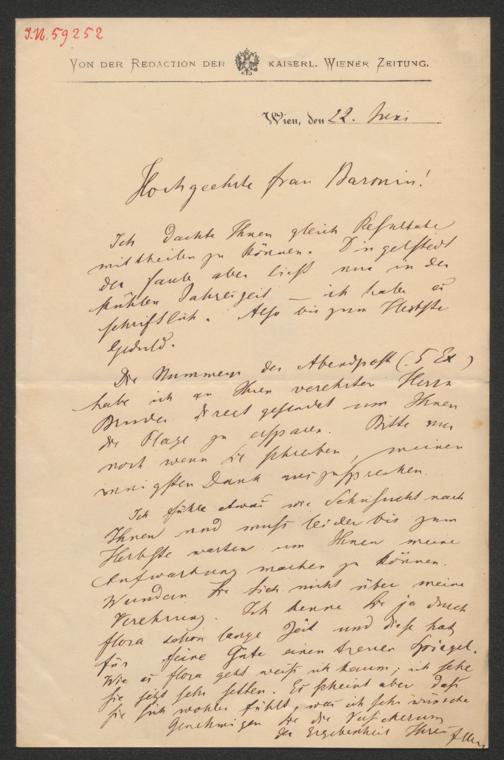 J.N. 59252
VON DER REDACTION DER KAISERL. WIENER ZEITUNG.
Wien, den 22. Juni
Hochgeehrte Frau Baronin!
Ich dachte Ihnen gleich Resultate
mittheilen zu können. Dingelstedt
der faule aber liest nur in der
kühlen Jahreszeit – ich habe es
schriftlich. Also bis zum Herbste
Geduld.
Die Nummern der Abendpost (5 Ex)
habe ich an Ihren verehrten Herrn
Bruder direct gesendet um Ihnen
die Plage zu ersparen. Bitte nur
noch wenn Sie schreiben, meinen
innigsten Dank auszusprechen.
Ich fühle etwas wie Sehnsucht nach
Ihnen und muß leider bis zum
Herbste warten um Ihnen meine
Aufwartung machen zu können.
Wundern Sie sich nicht über meine
Verehrung. Ich kenne Sie ja durch
Flora schon lange Zeit und diese hat
für feine Güte einen treuen Spiegel.
Wie es Flora geht weiß ich kaum; ich sehe
Sie jetzt sehr selten. Es scheint aber daß
Sie sich wohler fühlt, was ich sehr wünsche
Genehmigen Sie die Versicherung
der Ergebenheit Ihres